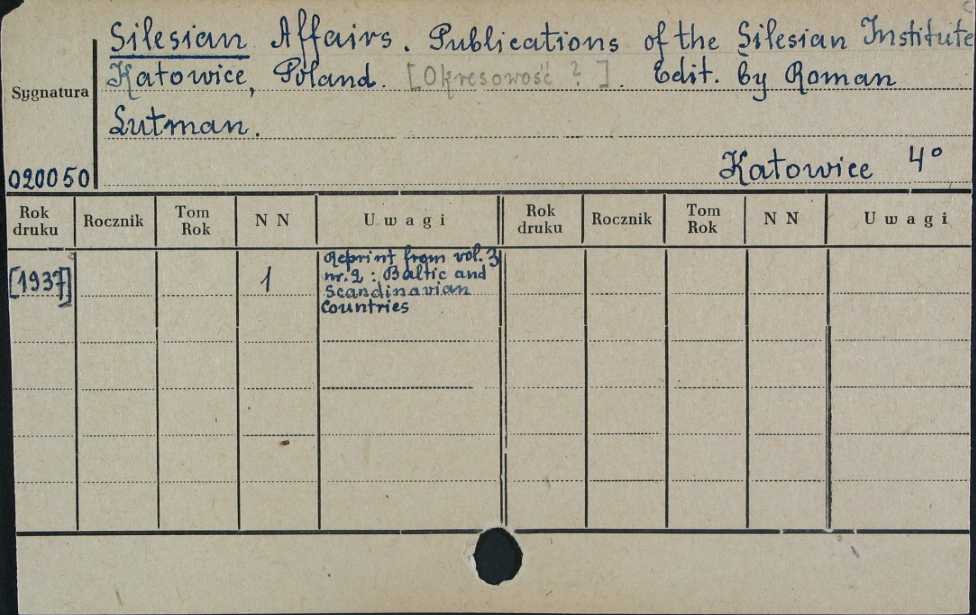 Silesian Affairs. Publications of the Silesian Institute
Katowice, Poland. [Okresowość ?]. Edit. by Roman
Sygnatura
Lutman.
Katowice 4°
020050
Rok druku Rocznik Tom Rok N N Uwagi Rok druku Rocznik Tom Rok N N Uwagi
[1937] 1 Reprint from vol. 3
nr. 2 : Baltic and
Scandinavian
Countries